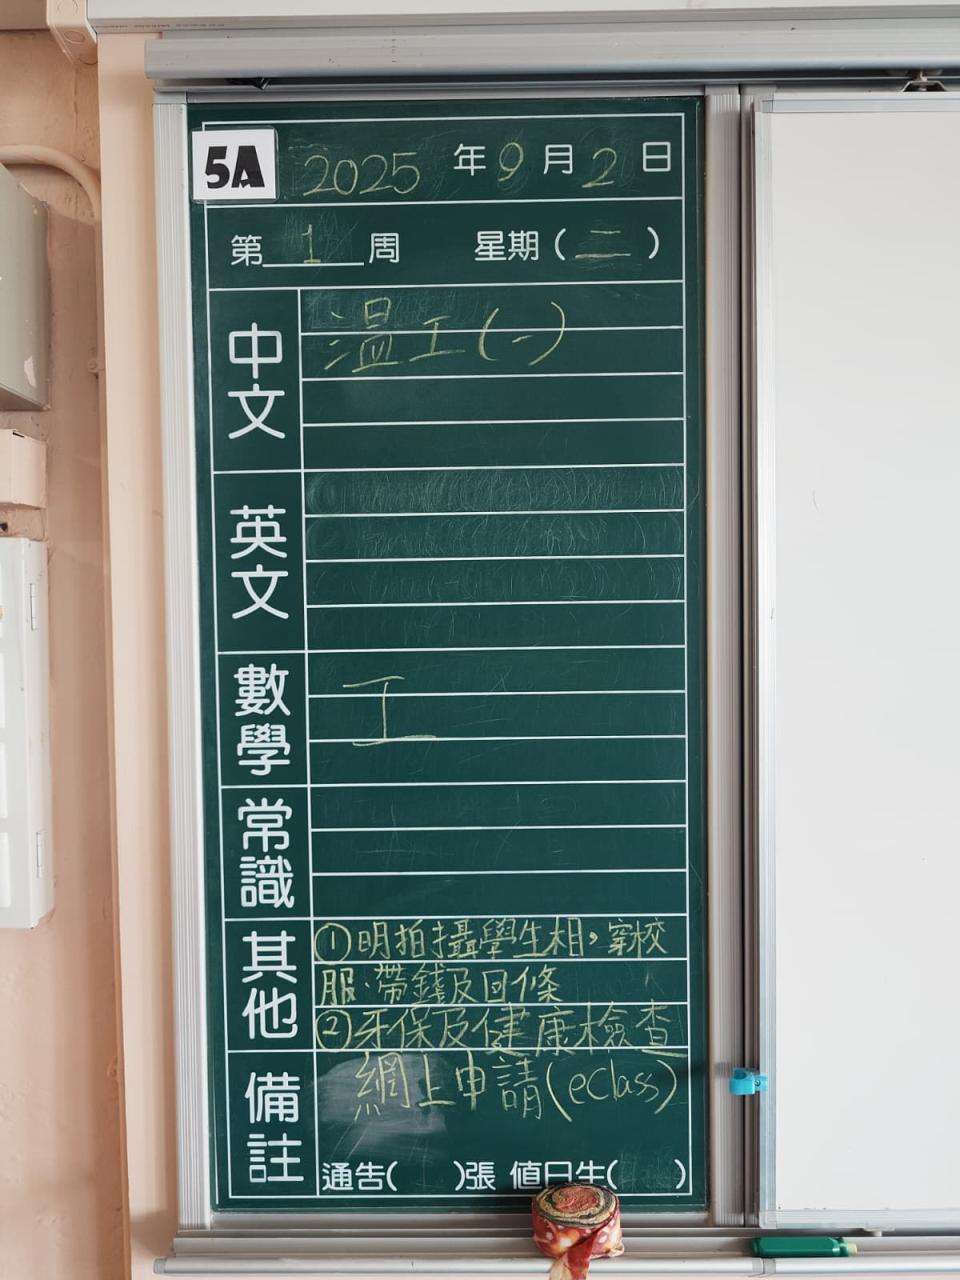 5A
2025年9月2日
第1周 星期(二)
中文
溫工(一)
英文
數學
工
常識
其他
①明拍攝學生相,穿校
服.帶錢及回條
②牙保及健康檢查
備註
網上申請(eClass)
通告( )張 值日生( )